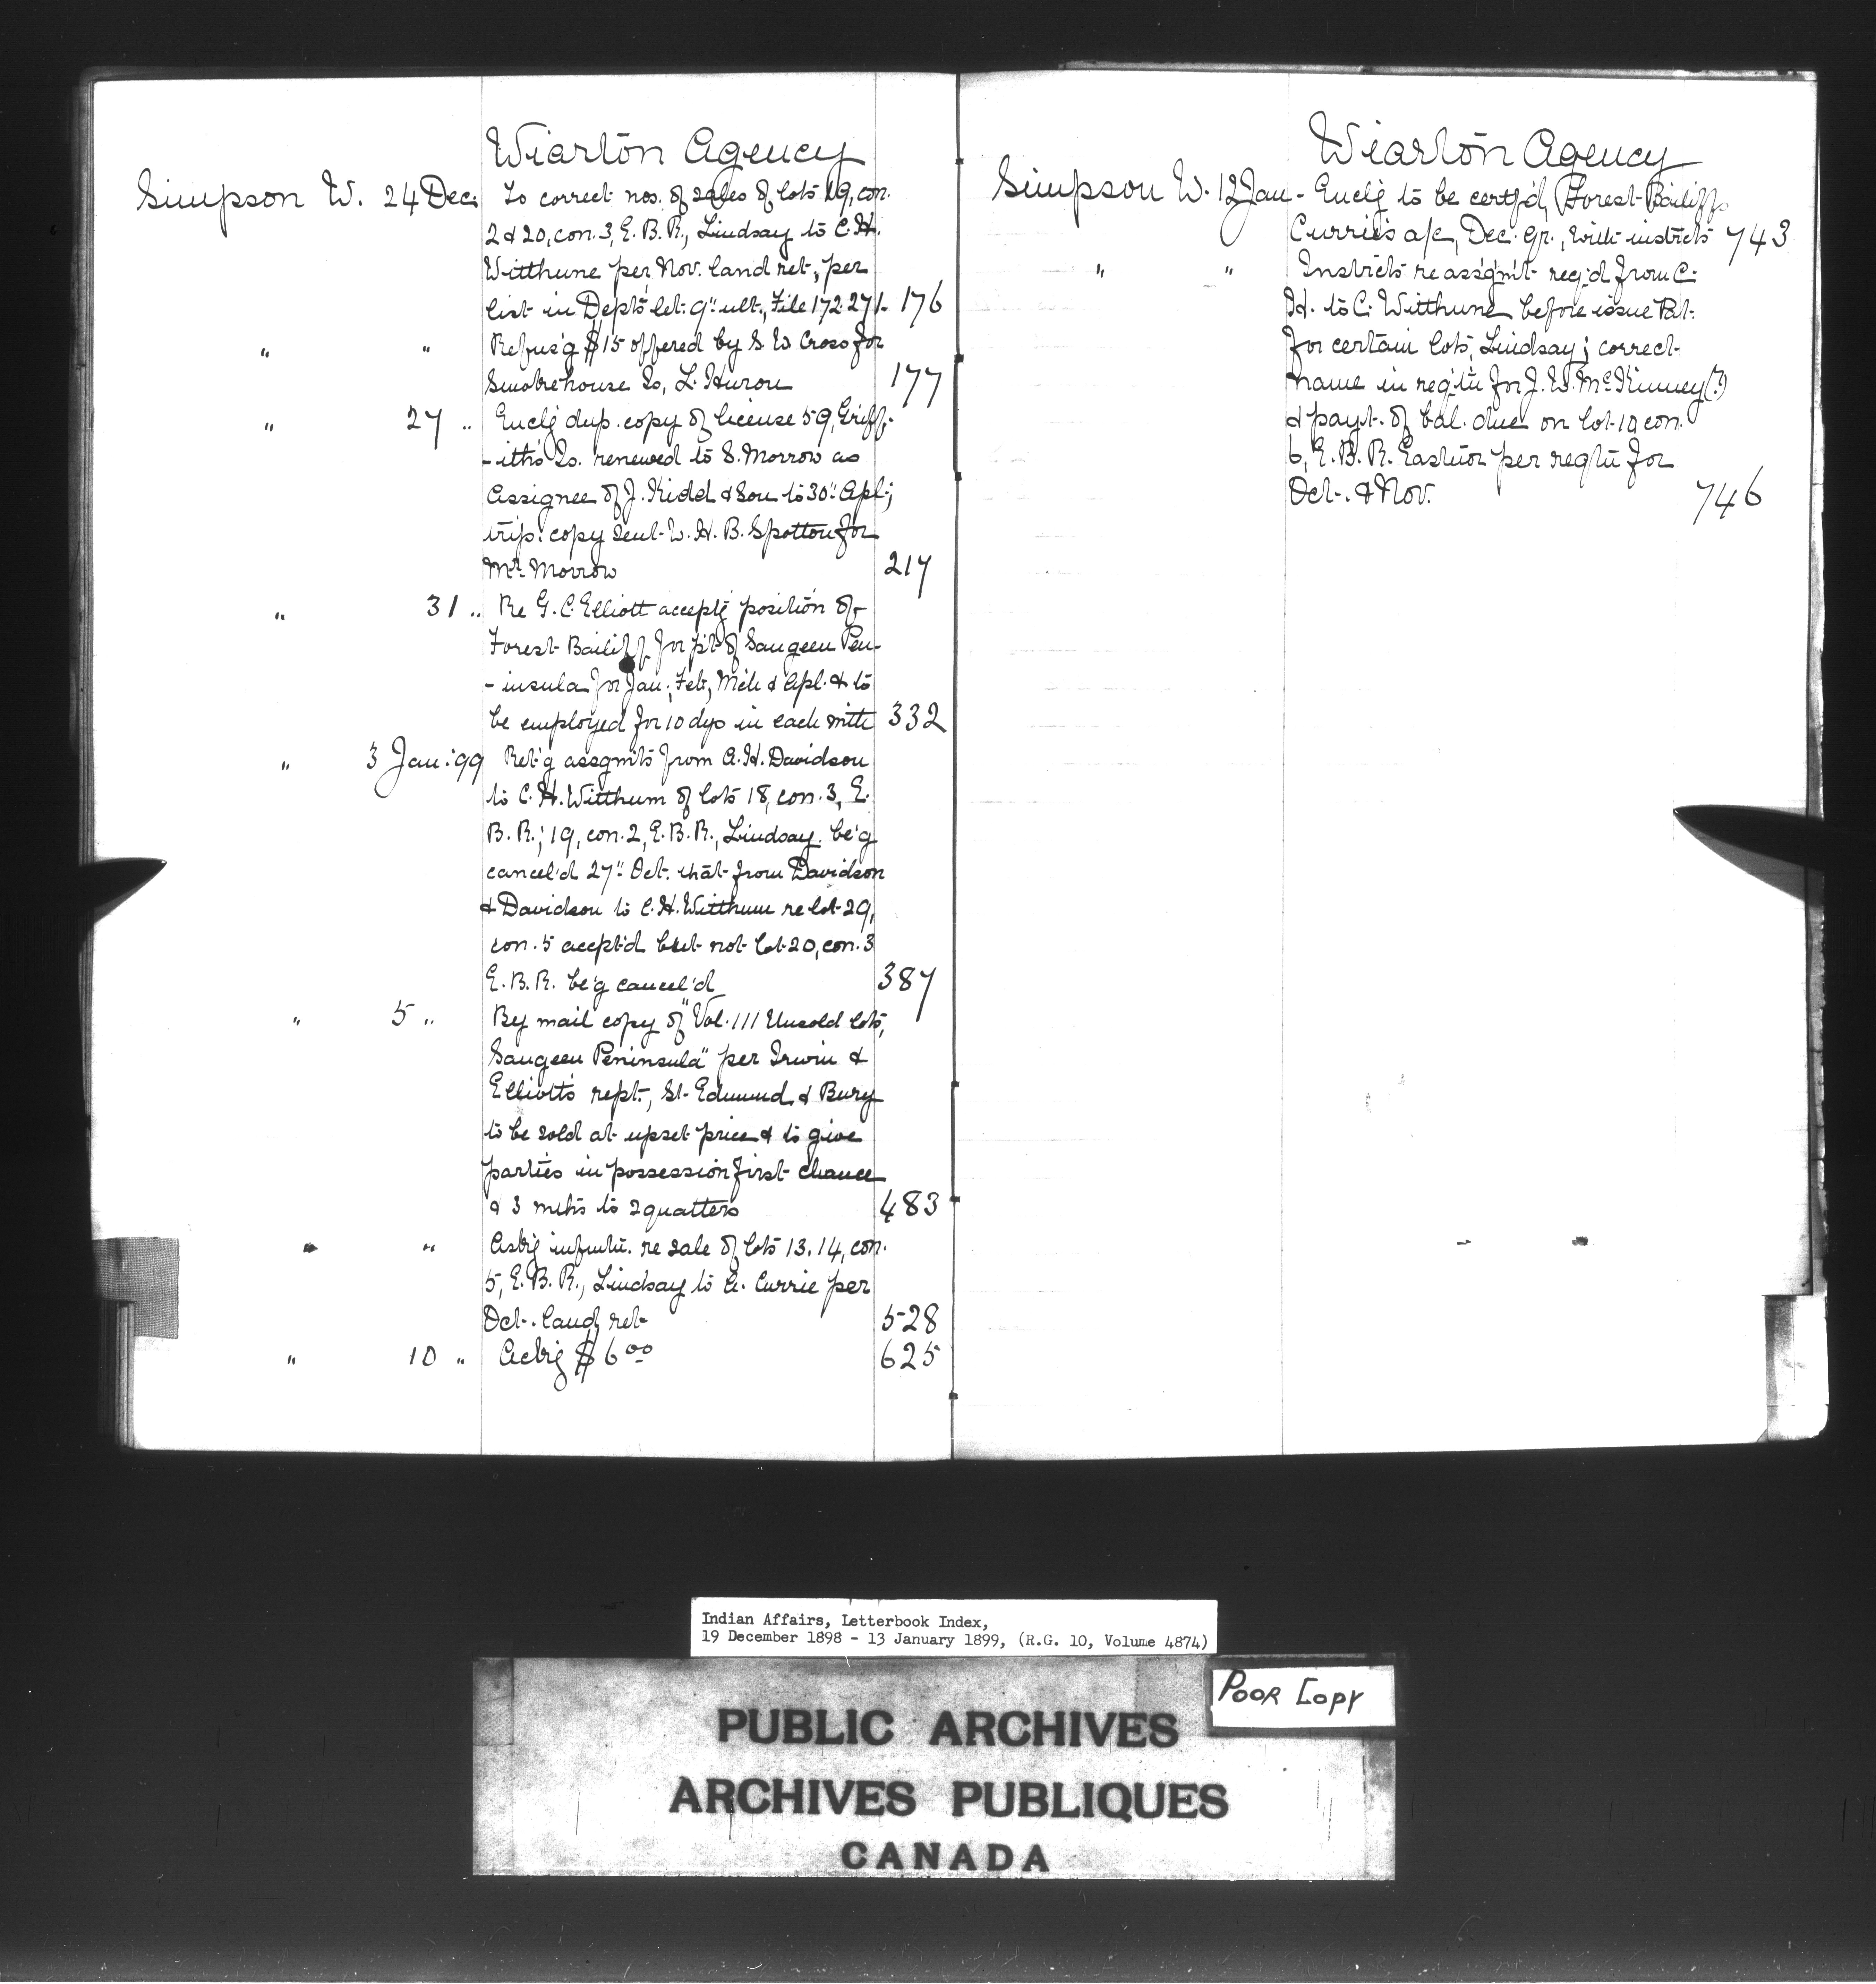 Wiarton Agency
Simpson W. 24 Dec. To correct nos. of sales of lots 19, con.
2 & 20, con. 3, E. B. R., Lindsay to C. H.
Witthune per Nov. land ret., per
list in Dept's let. 9" ult., File 172.271. 176
" " Refus'g $15 offered by S. W Cross for
Smokehouse Is, L. Huron 177
" 27 " Encl'g dup. copy of license 59, Griff-
-ith's Is. renewed to S. Morrow as
assignee of J. Kidd & Son to 30" Apl.;
trip. copy sent W. H. B. Spotton for
Mr. Morrow 217
" 31 " Re G. C. Elliott accept'g position of
Forest Bailiff for p't of Saugeen Pen-
-insula for Jan., Feb., Mch & Apl. & to
be employed for 10 dys in each mth 332
" 3 Jan: 99 Ret'g assgmts from A. H. Davidson
to C. H. Witthum of lots 18, con. 3, E.
B. R.; 19, con. 2, E. B. R., Lindsay. be'g
cancel'd 27" Oct. that from Davidson
& Davidson to C. H. Witthum re lot 29,
con. 5 accept'd but not lot 20, con. 3
E. B. R. be'g cancel'd 387
" 5 " By mail copy of "Vol. 111 Unsold lots,
Saugeen Peninsula" per Irwin &
Elliott's rept., St. Edmund & Bury
to be sold at upset price & to give
parties in possession first chance
& 3 mths to squatters 483
" " Ask'g infmtn. re sale of lots 13. 14, con.
5, E. B. R., Lindsay to A. Currie per
Oct. land ret. 528
" 10 " Ack'g $6 00 625
Wiarton Agency
Simpson W. 12 Jan - Encl'g to be certf'd, Forest Bailiff
Currie's a/c, Dec. qr., with instrcts 743
" " Instrcts re ass'gm't req'd from C.
H. to C. Witthune before issue Pat.
for certain lots, Lindsay; correct
name in reqtn for J. W. McKinney (?)
& payt. of bal. due on lot 10 con.
6, E. B. R. Eastnor per reqtn for
Oct. & Nov. 746
Indian Affairs, Letterbook Index,
19 December 1898 - 13 January 1899, (R.G. 10, Volume 4874)
POOR COPY
PUBLIC ARCHIVES
ARCHIVES PUBLIQUES
CANADA